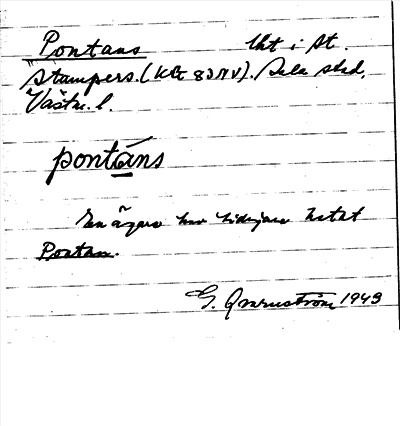 Pontans lht i St.
Stampers. (KB 83NV). Sala stad,
Västm. l.
pontáns
En ägare har tidigare hetat
Pontan.
G. 1949